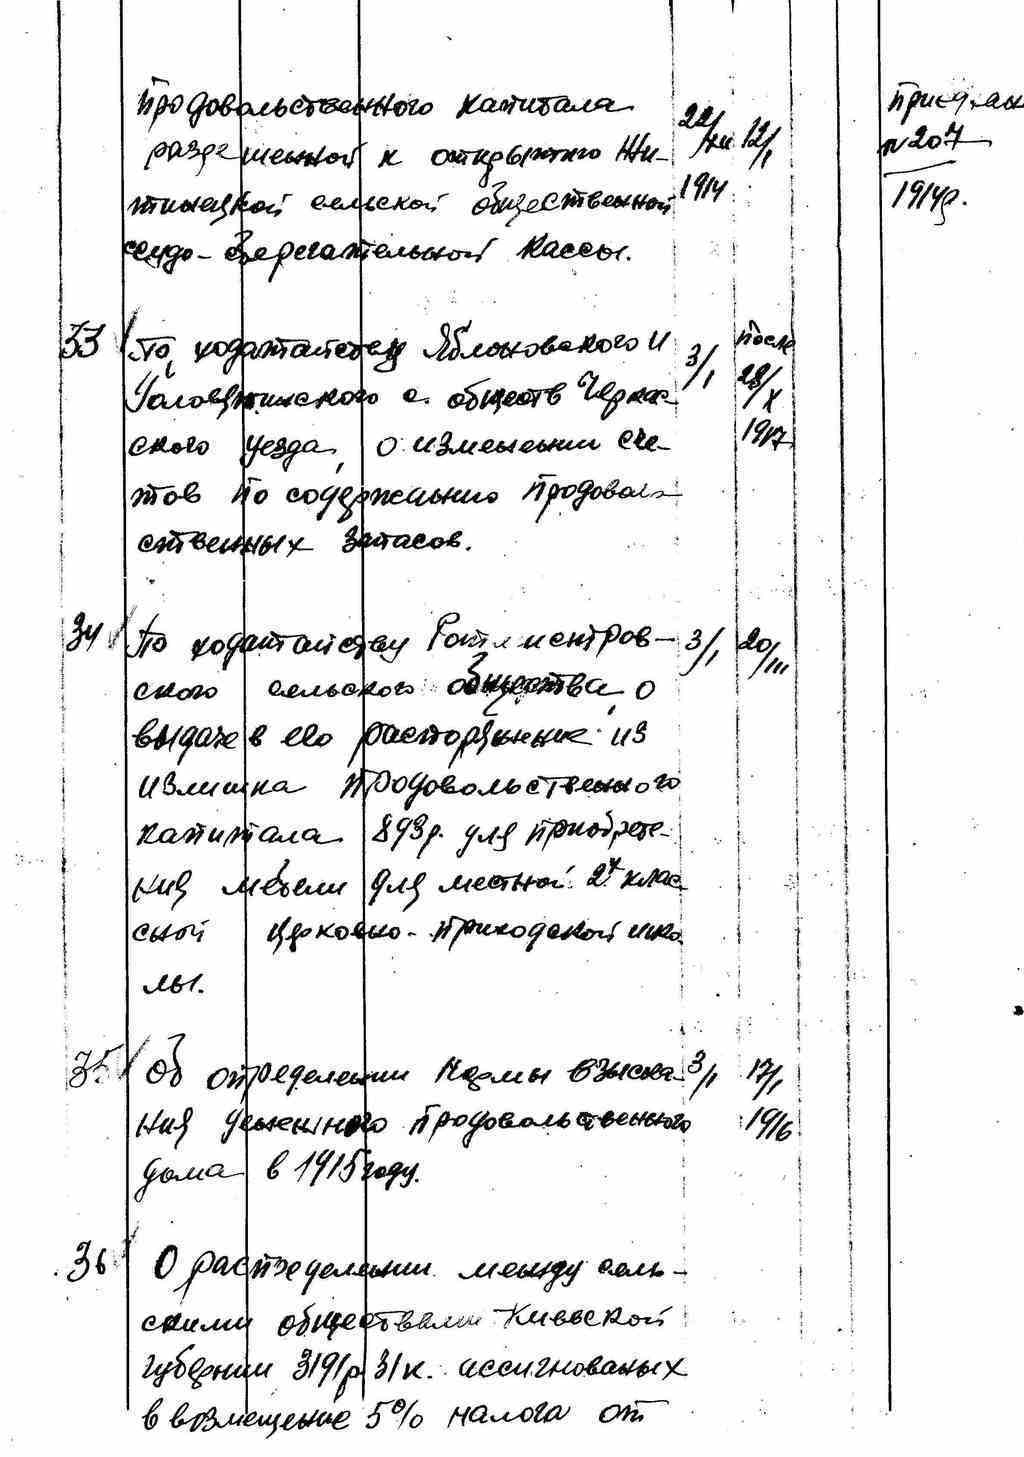 продовольственного капитала
разрешенной к открытию Жи-
тинецкой сельской общественной
ссудо-сберегательной кассы.
22/XII 1914
12/I
Присоед.
№ 207
1914 г.
33
По ходатайству Яблоновского и
с. обществ Черкас-
ского уезда, о изменении сче-
тов по содержанию продоволь-
ственных запасов.
3/I
после
28/X
1917
34
По ходатайству Ротмистров-
ского сельского общества, о
выдаче в его распоряжение из
излишка продовольственного
капитала 893 р. для приобрете-
ния мебели для местной 2х клас-
сной церковно-приходской шко-
лы.
3/I
20/III
35
Об определении нормы взыска-
ния денежного продовольственного
дома в 1915 году.
3/I
17/I
1916
36
О распределении между сель-
скими обществами Киевской
губернии 3191 р 31 к. ассигнованых
в возмещение 5% налога от